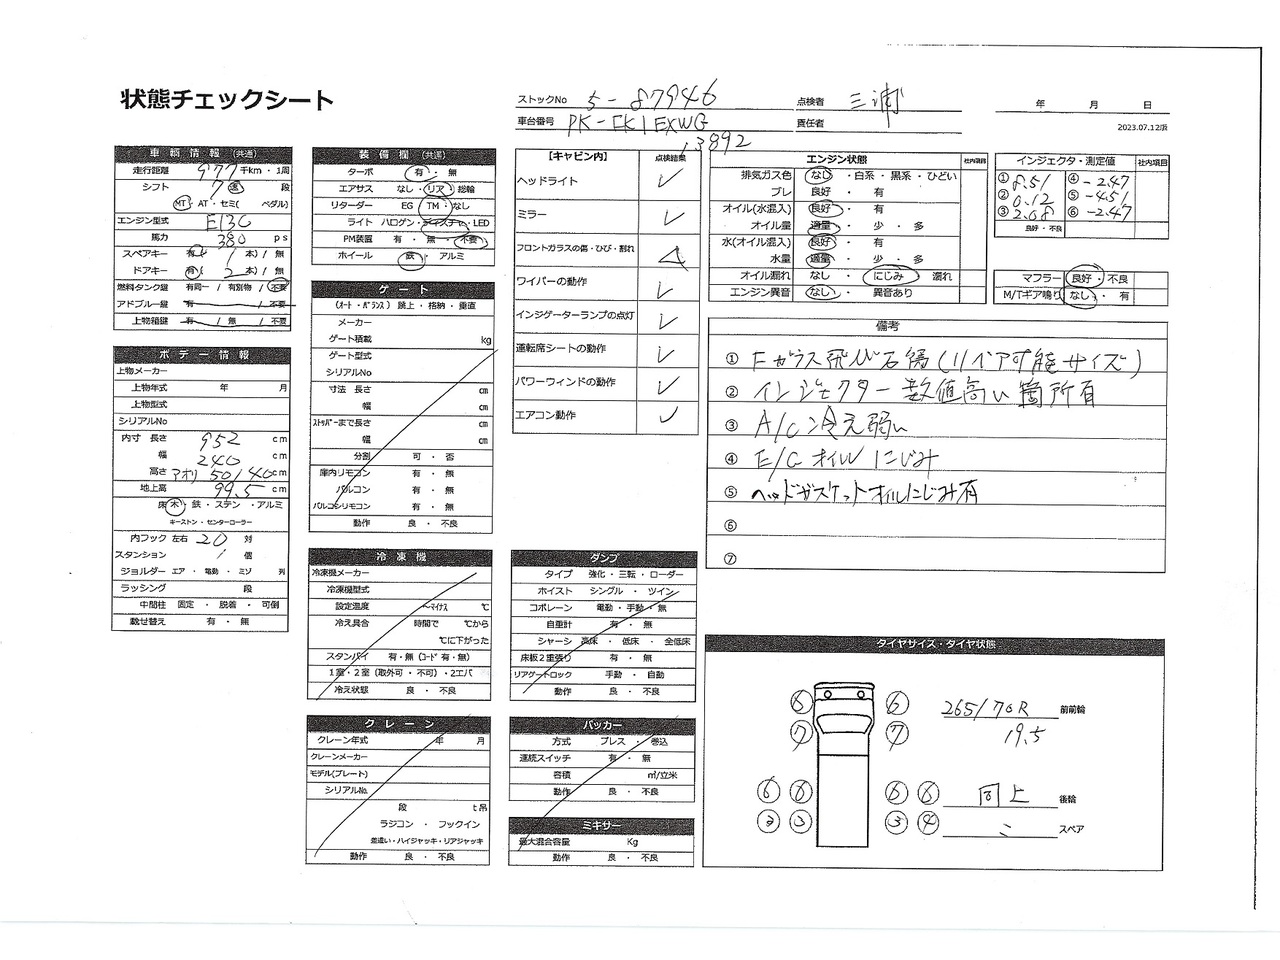 状態チェックシート
ストックNo 5-87946
点検者 三浦
年 月 日
車台番号 PK-FK1EXWG
13892
責任者
2023.07.12版
車輌情報 (共通)
走行距離 977 千km・1周
シフト 7 速 段
MT・AT・セミ( ペダル)
エンジン型式 E13C
馬力 380 ps
スペアキー 有( 1 本) / 無
ドアキー 有( 2 本) / 無
燃料タンク鍵 有同一 / 有別物 / 不要
アドブルー鍵 有 / 不要
上物箱鍵 有 / 無 / 不要
ボデー情報
上物メーカー
上物年式 年 月
上物型式
シリアルNo
内寸 長さ 952 cm
幅 240 cm
高さ アオリ 50/40 cm
地上高 99.5 cm
床 木・鉄・ステン・アルミ
キーストン・センターローラー
内フック 左右 20 対
スタンション / 個
ジョルダー エア・電動・ミゾ 列
ラッシング 段
中間柱 固定・脱着・可倒
載せ替え 有・無
装備欄 (共通)
ターボ 有・無
エアサス なし・リア・総輪
リターダー EG TM・なし
ライト ハロゲン・ディスチャ・LED
PM装置 有・無・不要
ホイール 鉄・アルミ
ゲート
(オート・バランス) 跳上・格納・垂直
メーカー
ゲート積載 kg
ゲート型式
シリアルNo
寸法 長さ cm
幅 cm
ストッパーまで長さ cm
幅 cm
分割 可・否
庫内リモコン 有・無
バルコン 有・無
バルコンリモコン 有・無
動作 良・不良
冷凍機
冷凍機メーカー
冷凍機型式
設定温度 ~マイナス ℃
冷え具合 時間で ℃から
℃に下がった
スタンバイ 有・無 (コード 有・無)
1室・2室 (取外可・不可)・2エバ
冷え状態 良・不良
クレーン
クレーン年式 年 月
クレーンメーカー
モデル(プレート)
シリアルNo.
段 t吊
ラジコン・フックイン
差違い・ハイジャッキ・リアジャッキ
動作 良・不良
【キャビン内】 点検結果
ヘッドライト ✓
ミラー ✓
フロントガラスの傷・ひび・割れ △
ワイパーの動作 ✓
インジゲーターランプの点灯 ✓
運転席シートの動作 ✓
パワーウィンドの動作 ✓
エアコン動作 ✓
ダンプ
タイプ 強化・三転・ローダー
ホイスト シングル・ツイン
コボレーン 電動・手動・無
自重計 有・無
シャーシ 高床・低床・全低床
床板2重張り 有・無
リアゲートロック 手動・自動
動作 良・不良
パッカー
方式 プレス・巻込
連続スイッチ 有・無
容積 ㎥/立米
動作 良・不良
ミキサー
最大混合容量 Kg
動作 良・不良
エンジン状態 社内項目
排気ガス色 なし・白系・黒系・ひどい
ブレ 良好・有
オイル(水混入) 良好・有
オイル量 適量・少・多
水(オイル混入) 良好・有
水量 適量・少・多
オイル漏れ なし・にじみ 漏れ
エンジン異音 なし・異音あり
インジェクタ・測定値 社内項目
① 8.51 ④ -2.47
② 0.12 ⑤ -4.51
③ 2.08 ⑥ -2.47
良好・不良
マフラー 良好・不良
M/Tギア鳴り なし・有
備考
① Fガラス飛び石傷(リペア可能サイズ)
② インジェクター数値高い箇所有
③ A/C冷え弱い
④ E/Gオイルにじみ
⑤ ヘッドガスケットオイルにじみ有
⑥
⑦
タイヤサイズ・タイヤ状態
⑥ ⑥ 265/70R 前前輪
⑦ ⑦ 19.5
⑥ ⑥ ⑥ ⑥ 同上 後輪
③ ③ ③ ④ スペア